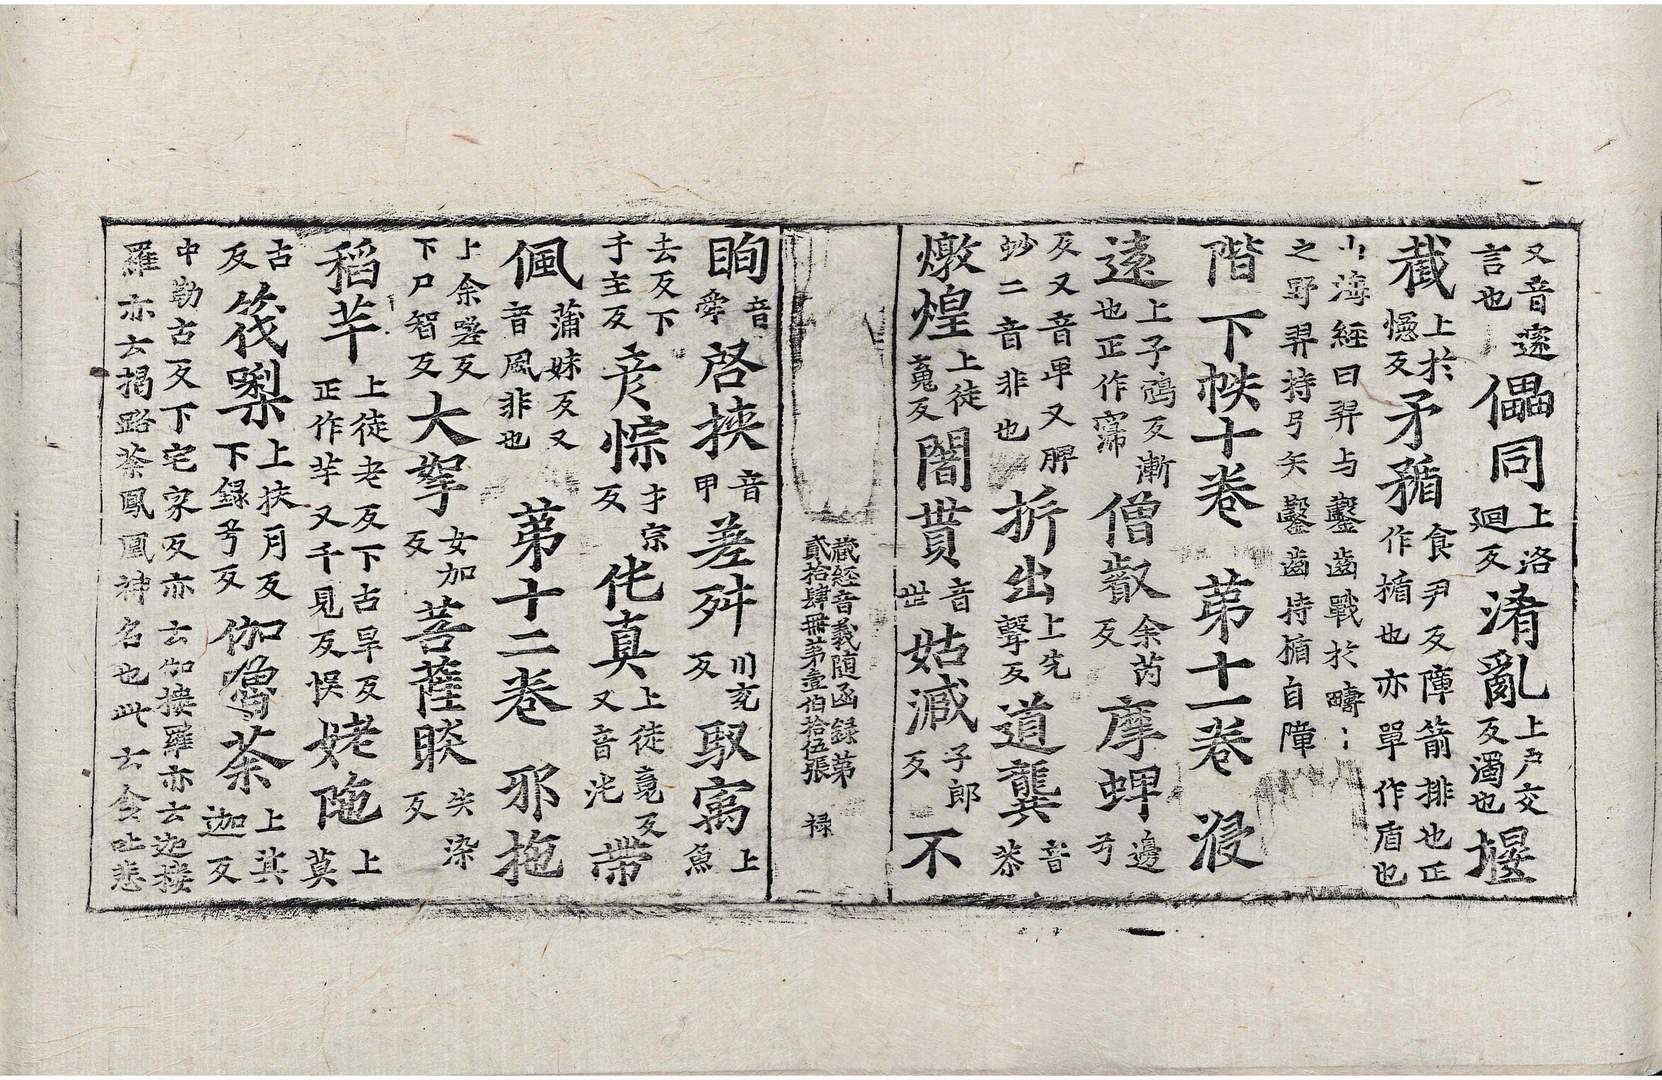 又音䆳
言也 儡同 上洛
廻反 淆亂 上戶交
反濁也 堰
截 上於
憶反 矛𥎞 食尹反障箭排也正
作楯也亦單作盾也
山海經曰羿与鑿齒戰於疇：
之野羿持弓矢鑿齒持楯自障
階下帙十卷 第十一卷 浸
遠 上子鴆反漸
也正作𡫏 僧叡 余芮
反 摩蜱 邊
兮
反又音甲又脾
妙二音非也 折出 上先
擊反 道龔 音
恭
燉煌 上徒
䰟反 闇貰 音
世 姑減 子郎
反 不
藏經音義随函録第
貳拾肆冊第壹伯拾伍張 禄
眴 音
舜 啓挾 音
甲 差舛 川兖
反 馭㝢 上
魚
去反下
于主反 彦悰 才宗
反 伅真 上徒寬反
又音沌 帶
佩 蒲妹反又
音凨非也 第十二卷 邪拖
上余嗟反
下尸智反 大挐 女加
反 菩薩睒 失染
反
稻芉 上徒老反下古旱反
正作芉又千見反悮 姥陁 上
莫
古
反 筏㗚 上扶月反
下録兮反 伽𠿒荼 上其
迦反
中勒古反下宅家反亦云伽搂羅亦云迦搂
羅亦云揭路荼鳳凰神名也此云食吐悲